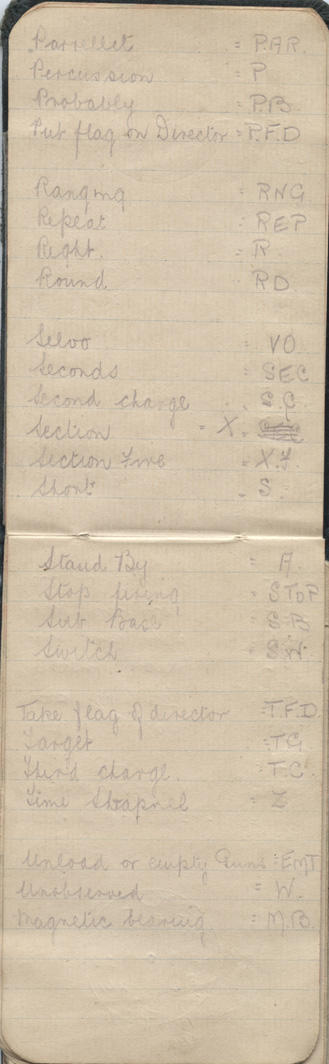 Parrellet = P.AR.
Percussion = P
Probably = P.B
Put flag on Director = P.F.D
Ranging = RNG
Repeat = REP
Right. = R
Round = RD
Selvo = VO
Seconds = SEC
Second charge = S.C
Section = X.
Section Fire = X.F.
Short = S.
Stand By = A.
Stop firing = STOP
Sub Base = S.B
Switch = S.W.
Take flag of director = T.F.D.
Target = TG
Third charge. = T.C.
Time Shrapnel = Z
Unload or empty Guns = EMT
Unobserved = W.
Magnetic bearing = M.B.